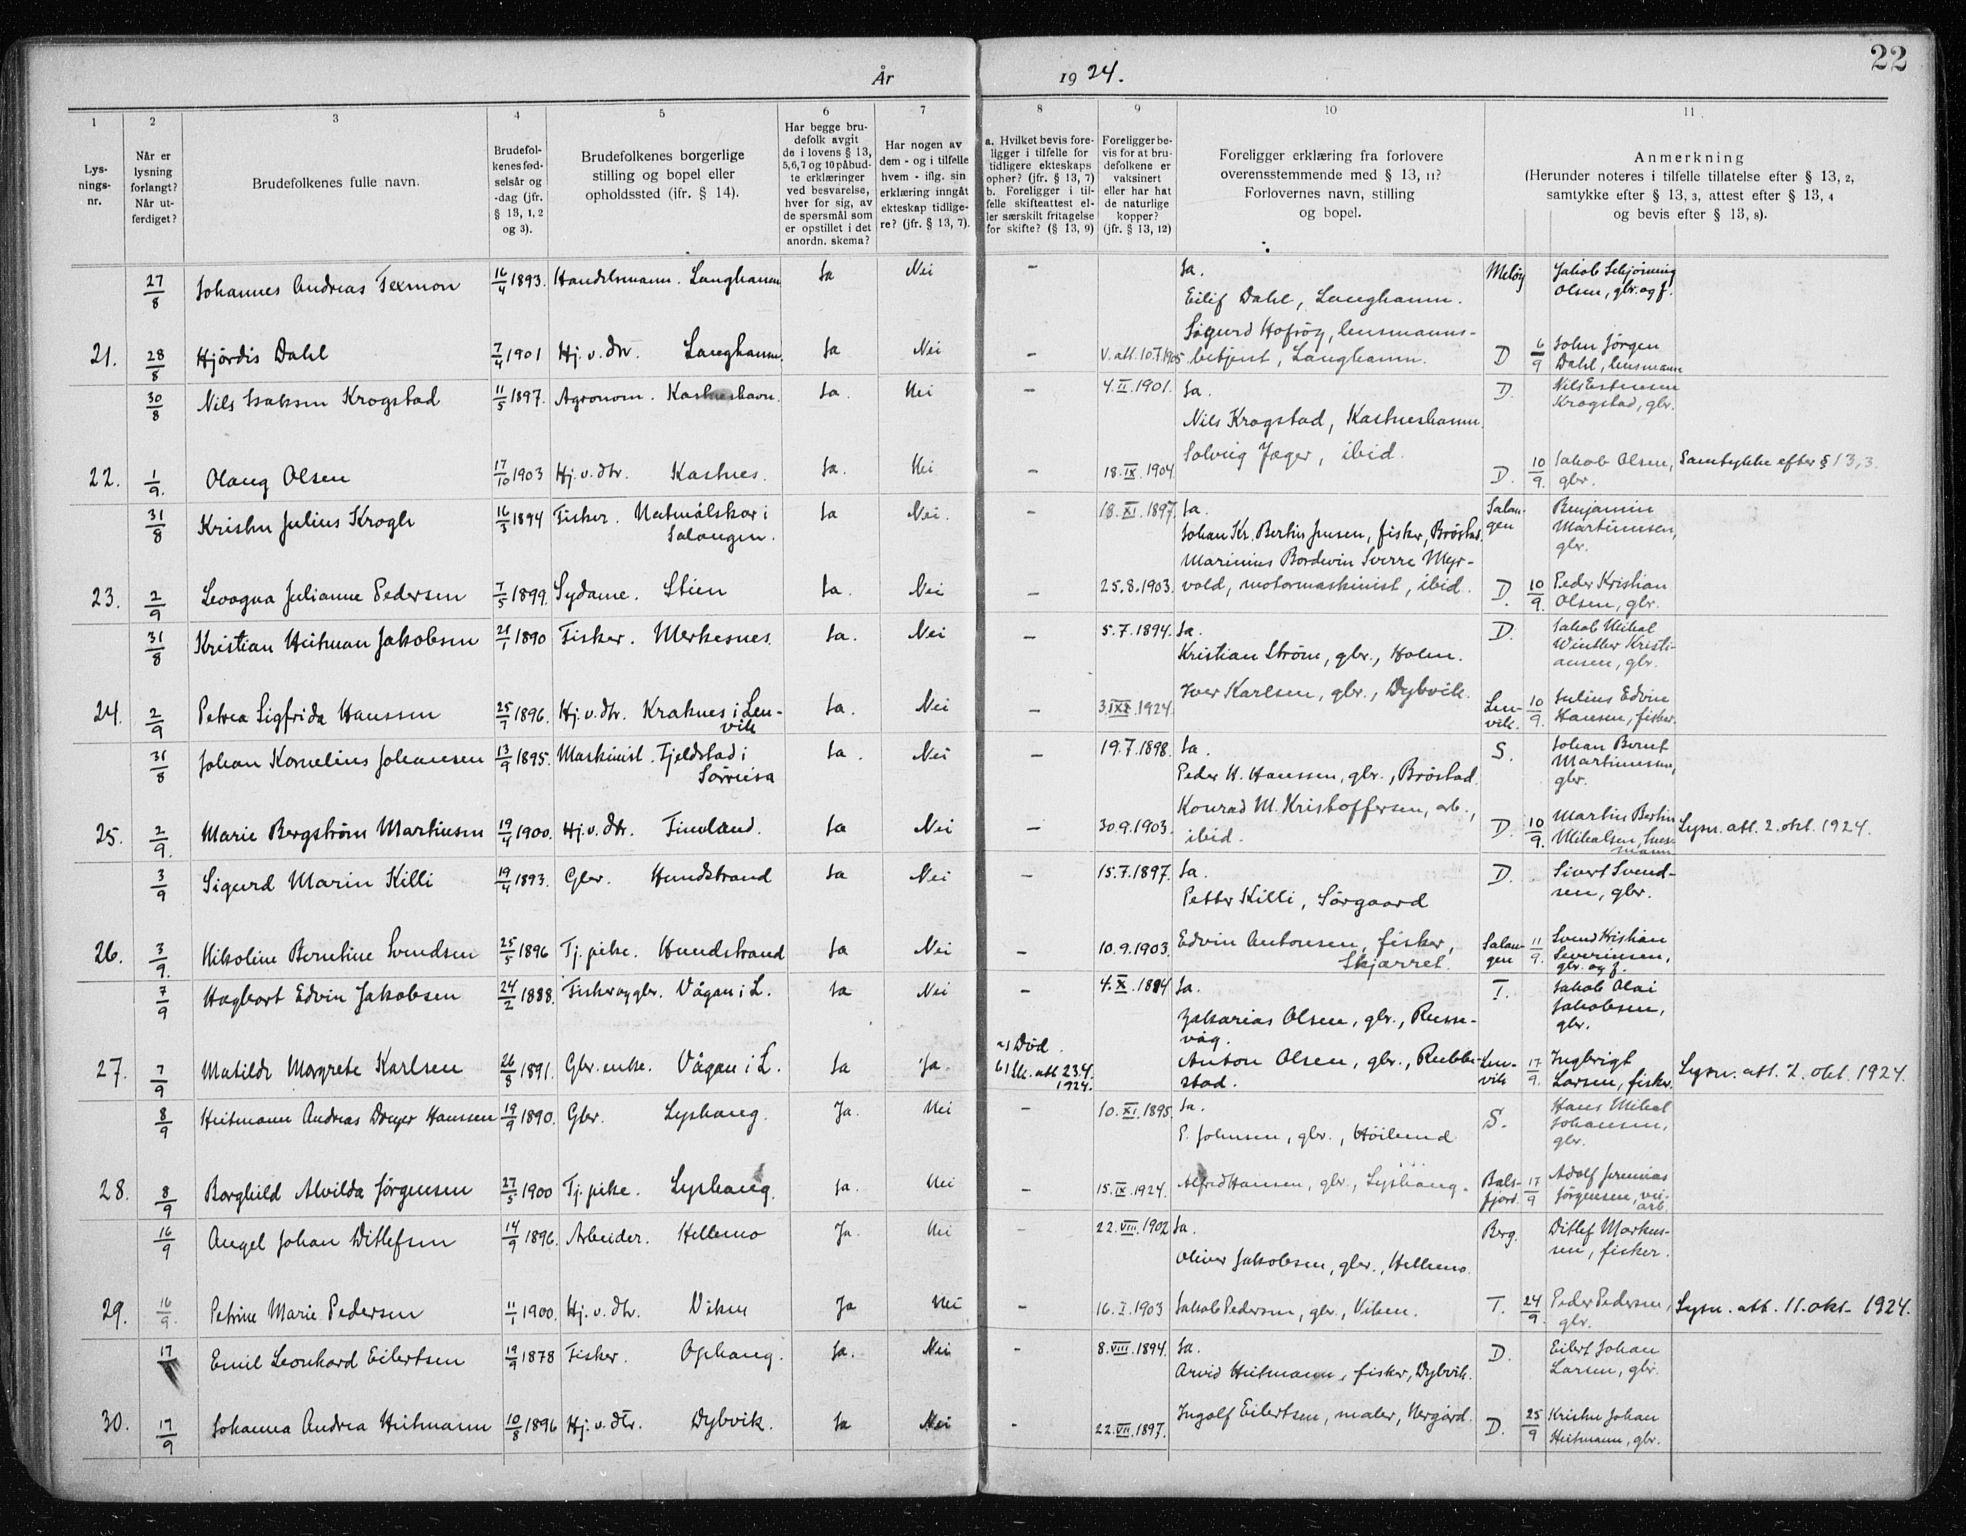 22
År 1924.
1 2 3 4 5 6 7 8 9 10 11
Lys-
nings-
nr.
Når er
lysning
forlangt?
Når ut-
ferdiget?
Brudefolkenes fulle navn.
Brudefol-
kenes fød-
selsår og
-dag (jfr.
§ 13, 1, 2
og 3).
Brudefolkenes borgerlige
stilling og bopel eller
opholdssted (jfr. § 14).
Har begge bru-
defolk avgit
de i lovens § 13,
5,6,7 og 10 påbud-
te erklæringer
ved besvarelse,
hver for sig, av
de spørsmål som
er opstillet i det
anordn. skema?
Har nogen av
dem - og i tilfelle
hvem - iflg. sin
erklæring inngåt
ekteskap tidlige-
re? (jfr. § 13, 7).
a. Hvilket bevis fore-
ligger i tilfelle for
tidligere ekteskaps
ophør? (jfr. § 13, 7)
b. Foreligger i til-
felle skifteattest el-
ler særskilt fritagelse
for skifte? (§ 13, 9)
Foreligger be-
vis for at bru-
defolkene er
vaksinert
eller har hat
de naturlige
kopper?
(jfr. § 13, 12)
Foreligger erklæring fra forlovere
overensstemmende med § 13, 11?
Forlovernes navn, stilling
og bopel.
Anmerkning
(Herunder noteres i tilfelle tillatelse efter § 13, 2,
samtykke efter § 13, 3, attest efter § 13, 4
og bevis efter § 13, 8).
27/8 Johannes Andreas Texmon 16/4 1893. Handelsmann. Langhamn Ja Nei – Ja. Meløy Jakob Schjøning
Eilif Dahl, Langhamn. Olsen, gbr. og f.
Sigurd Hofsøy, lensmanns-
21. 28/8 Hjördis Dahl 7/4 1901 Hj. v. dtr. Langhamn. Ja Nei – V. att. 10.7.1905 betjent, Langhamn. D 6/9 John Jörgen
Dahl, lensmann
30/8 Nils Isaksen Krogstad 11/5 1897. Agronom. Kastneshavn. Ja. Nei – 4.II.1901. Ja. D. Nils Estensen
Krogstad, gbr.
Nils Krogstad, Kastneshamn.
Solveig Jæger, ibid.
22. 1/9. Olaug Olsen 17/10 1903 Hj. v. dtr. Kastnes. Ja. Nei – 18.IX.1904 D 10/9. Jakob Olsen, Samtykke efter § 13,3.
gbr.
31/8 Kristen Julius Krogh 16/3 1894 Fisker. i Ja Nei. – 18.XI.1897. Ja. Salan- Benjamin
Salangen. gen Martinussen,
Johan Kr. Bertin Jensen, fisker, Bröstad. gbr.
Marinius Bordevin Sverre Myr-
23. 2/9 Lovagna Julianne Pedersen 7/5 1899. Sydame. Stien Ja. Nei – 25.8.1903. vold, motormaskinist, ibid. D. 10/9. Peder Kristian
Olsen, gbr.
31/8 Kristian Heitman Jakobsen 21/1 1890 Fisker. Merkesnes. Ja. Nei – 5.7.1894. Ja. D. Jakob Mikal
Kristian Strøm, gbr., Holm. Winther Kristi-
ansen, gbr.
Iver Karlsen, gbr., Dybvik.
24. 2/9 Petrea Sigfrida Hanssen 25/7 1896. Hj. v. dtr. Kraknes i Len- Ja. Nei – 3.IX.1924. Len- 10/9 Julius Edvin
vik vik. Hansen, fisker.
31/8 Johan Kornelius Johansen 13/9 1895. Maskinist. Fjeldstad i Ja. Nei – 19.7.1898. Ja. S. Johan Bernt
Sørreisa Martinussen,
Peder H. Hanssen, gbr., Bröstad. gbr.
Konrad M. Kristoffersen, arb.,
25. 2/9. Marie Bergstrøm Martinsen 19/4 1900. Hj. v. dtr. Finland. Ja Nei – 30.9.1903. ibid. D. 10/9. Martin Bertin Lysn. att. 2. okt. 1924.
Mikalsen, hus-
mann
3/9 Sigurd Marin Killi 19/4 1893. Gbr. Hundstrand Ja Nei – 15.7.1897. Ja. D. Sivert Svend-
Petter Killi, Sørgaard sen, gbr.
26. 3/9. Nikoline Berntine Svendsen 25/5 1896 Tj. pike. Hundstrand Ja Nei – 10.9.1903. Edvin Antonsen, fisker, Salan- 11/9. Svend Kristian
Skjærret. gen Severinsen,
gbr. og f.
7/9 Hagbart Edvin Jakobsen 24/2 1888. Fisker og gbr. Vågan i L. Ja Nei – 4.X.1894 Ja. T. Jakob Olai
Jakobsen,
Zakarias Olsen, gbr., Russe- gbr.
våg.
27. 7/9 Matilde Margrete Karlsen 26/8 1891. Gbr. enke. Vågan i L. Ja Ja. a) Død. Anton Olsen, gbr., Rubbe- Len- 17/9. Ingbrigt Lysn. att. 2. okt. 1924.
b) Sk. att. 23.4. stad. vik Larsen, fisker.
1924.
8/9 Heitmann Andreas Dreyer Hanssen 19/9 1890. Gbr. Lysbang. Ja. Nei – 10.XI.1895. Ja. S. Hans Mikal
Johansen,
E. Johnsen, gbr., Höilund gbr.
28. 8/9 Borghild Alvilda Jörgensen 27/5 1900 Tj. pike. Lysbang. Ja. Nei – 15.IX.1924. Alfred Hansen, gbr., Lysbang. Bals- 17/9 Adolf Jeremias
fjord. Jörgensen, vei-
arb.
16/9 Angel Johan Ditlefsen 14/9 1896. Arbeider. Hellemo Ja. Nei – 22.VIII.1902 Ja. Berg. Ditlef Markus-
sen, fisker.
Oliver Jakobsen, gbr., Hellemo.
29. 16/9. Petrine Marie Pedersen 11/1 1900. Hj. v. dtr. Viken Ja Nei – 16.I.1903 Jakob Pedersen, gbr., Viken. T. 24/9. Peder Pedersen, Lysn. att. 11. okt. 1924.
gbr.
17 Emil Leonhard Eilertsen 19/9 1878 Fisker. Ophaug. Ja. Nei – 8.VIII.1894. Ja. D. Eilert Johan
Arvid Heitmann, fisker, Dybvik. Larsen, gbr.
30. 17/9 Johanna Andrea Heitmann 10/8 1896 Hj. v. dtr. Dybvik. Ja Nei – 22.VII.1897. Ingolf Eilertsen, maler, Nergård. D. 25/9 Kristen Johan
Heitmann, gbr.